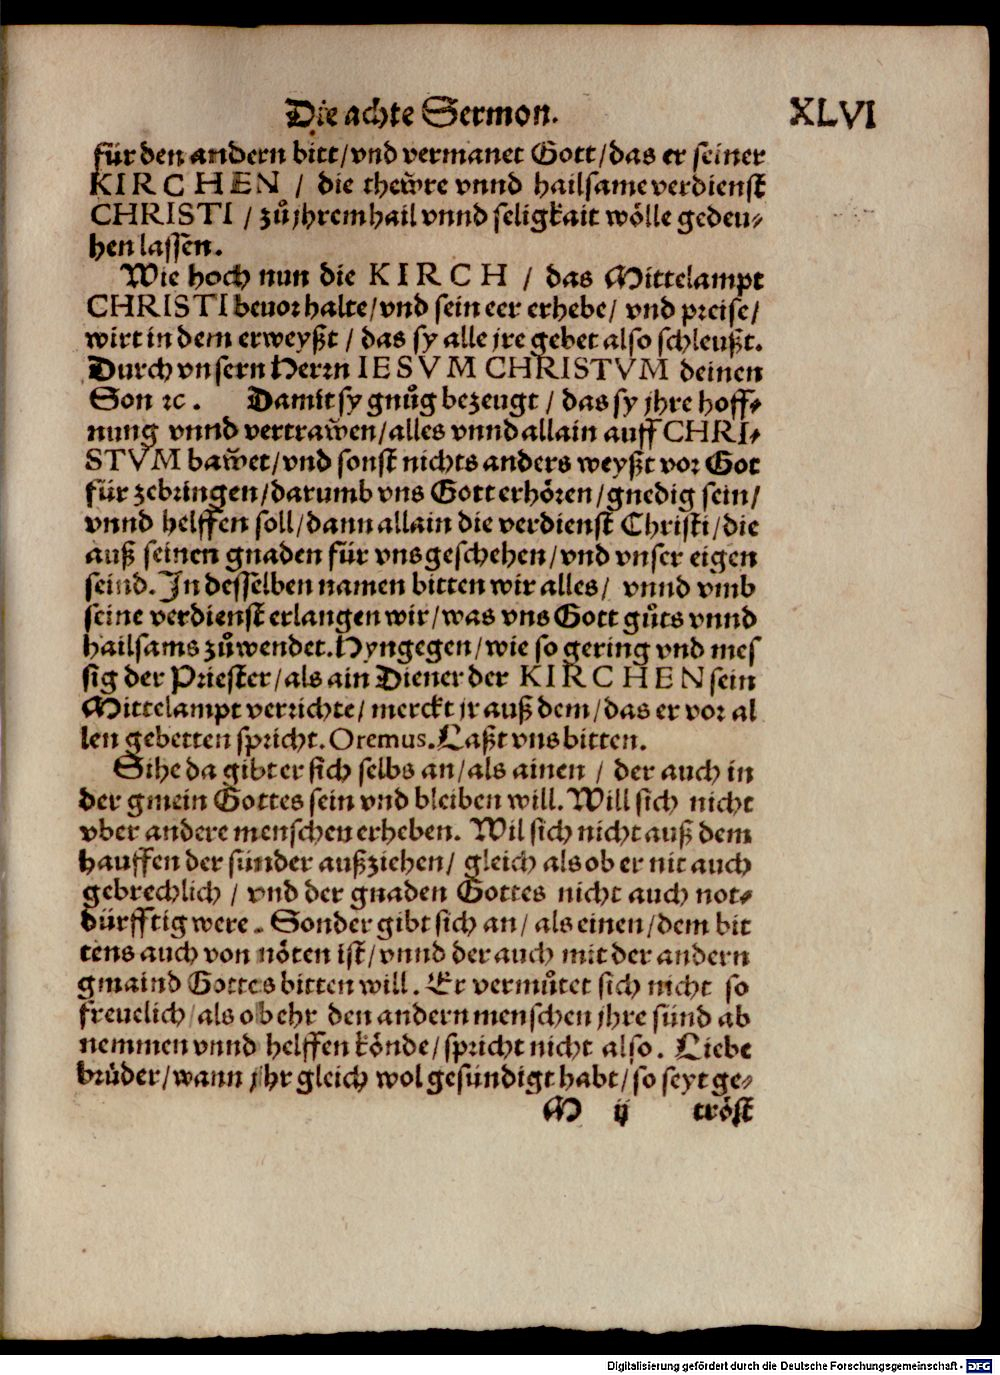 Die achte Sermon. XLVI
für den andern bitt/vnd vermanet Gott/das er seiner
KIRCHEN / die thew̃re vnnd hailsame verdienst
CHRISTI / zů jhrem hail vnnd seligkait wölle gedeu⸗
hen lassen.
Wie hoch nun die KIRCH / das Mittelampt
CHRISTI beuor halte/vnd sein eer erhebe/ vnd preise/
wirt in dem erweyßt / das sy alle jre gebet also schleußt.
Durch vnsern Herrn IESVM CHRISTVM deinen
Son ꝛc. Damit sy gnůg bezeugt / das sy jhre hoff⸗
nung vnnd vertraw̃en/alles vnnd allain auff CHRI⸗
STVM baw̃et/vnd sonst nichts anders weyßt vor Got
für zebringen/darumb vns Gott erhören/gnedig sein/
vnnd helffen soll/dann allain die verdienst Christi/die
auß seinen gnaden für vns geschehen/vnd vnser eigen
seind. In desselben namen bitten wir alles/ vnnd vmb
seine verdienst erlangen wir/was vns Gott gůts vnnd
hailsams zůwendet. Hyngegen/wie so gering vnd mes
sig der Priester/als ain Diener der KIRCHEN sein
Mittelampt verrichte/ merckt jr auß dem/das er vor al
len gebetten spricht. Oremus. Laßt vns bitten.
Sihe da gibt er sich selbs an/als ainen / der auch in
der gmein Gottes sein vnd bleiben will. Will sich nicht
vber andere menschen erheben. Wil sich nicht auß dem
hauffen der sünder außziehen/ gleich als ob er nit auch
gebrechlich / vnd der gnaden Gottes nicht auch not⸗
dürfftig were. Sonder gibt sich an/ als einen/dem bit
tens auch von nöten ist/vnnd der auch mit der andern
gmaind Gottes bitten will. Er vermůtet sich nicht so
freuelich/als ob ehr den andern menschen jhre sünd ab
nemmen vnnd helffen könde/spricht nicht also. Liebe
brüder/wann jhr gleich wol gesündigt habt/so seyt ge⸗
M ij tröst
Digitalisierung gefördert durch die Deutsche Forschungsgemeinschaft - DFG